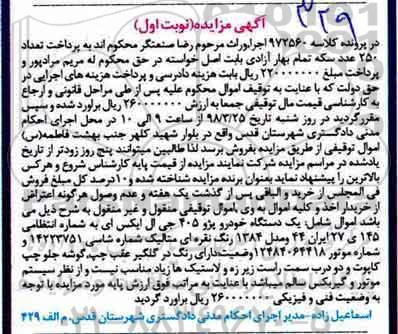 ۳۲۹
آگهی مزایده(نوبت اول)
در پرونده کلاسه ۹۷۲۵۶۰ اجراوراث مرحوم رضا صنعتگر محکوم اند به پرداخت تعداد
۲۵۰ عدد سکه تمام بهار آزادی بابت اصل خواسته در حق محکوم له مریم مرادپور و
پرداخت مبلغ ۲۲۰۰۰۰۰۰۰ ریال بابت هزینه دادرسی و پرداخت هزینه های اجرایی در
حق دولت که با عنایت به توقیف اموال محکوم علیه پس از طی مراحل قانونی و ارجاع
به کارشناسی قیمت مال توقیفی جمعا به ارزش ۲۶۰۰۰۰۰۰۰ ریال براورد شده و سپس
مقررگردید در روز شنبه تاریخ ۹۸/۳/۲۵ از ساعت ۹ الی ۱۰ در محل اجرای احکام
مدنی دادگستری شهرستان قدس واقع در بلوار شهید کلهر جنب بهشت فاطمه(س)
اموال توقیفی از طریق مزایده بفروش برسد لذا طالبین میتوانند پنج روز زودتر از تاریخ
یادشده در مراسم مزایده شرکت نمایند مزایده از قیمت پایه کارشناس شروع و هرکس
بالاترین را پیشنهاد نماید بعنوان برنده مزایده شناخته شده و ۱۰درصد کل مبلغ فروش
فی المجلس از خریدار و الباقی پس از گذشت یک هفته و عدم وصول هرگونه اعتراض
از خریدار اخذ و کلیه اموال به وی .اموال توقیفی منقول و غیر منقول به شرح ذیل می
باشد اموال شامل: یک دستگاه خودرو پژو ۴۰۵ جی ال ایکس ای به شماره انتظامی
۱۴۵ ی ۲۷ ایران ۴۴ ومدل ۱۳۸۴ رنگ نقره ای متالیک شماره شاسی ۱۴۲۲۳۷۵۱ و
شماره موتور ۱۲۴۸۴۰۶۴۴۱۸وضعیت:دارای رنگ در گلگیر عقب چپ،گوشه جلو چپ
کاپوت و دو درب سمت راست زیر زه و لاستیک ها زیاد مناسب نیست و از نظر سیستم
موتور و گیربکس سالم میباشد با عنایت به مراتب فوق ارزش پایه مورد مزایده با توجه
به وضعیت فنی و فیزیکی ۲۶۰۰۰۰۰۰۰ ریال براورد گردید
اسماعیل زاده-مدیر اجرای احکام مدنی دادگستری شهرستان قدس، م الف ۴۲۹